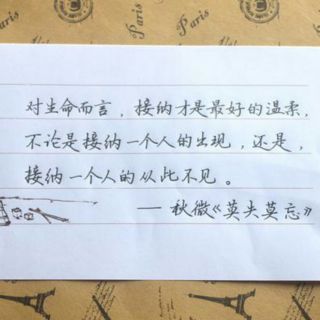 Paris
Paris
对生命而言，接纳才是最好的温柔，
不论是接纳一个人的出现，还是，
接纳一个人的从此不见。
— 秋微《莫失莫忘》